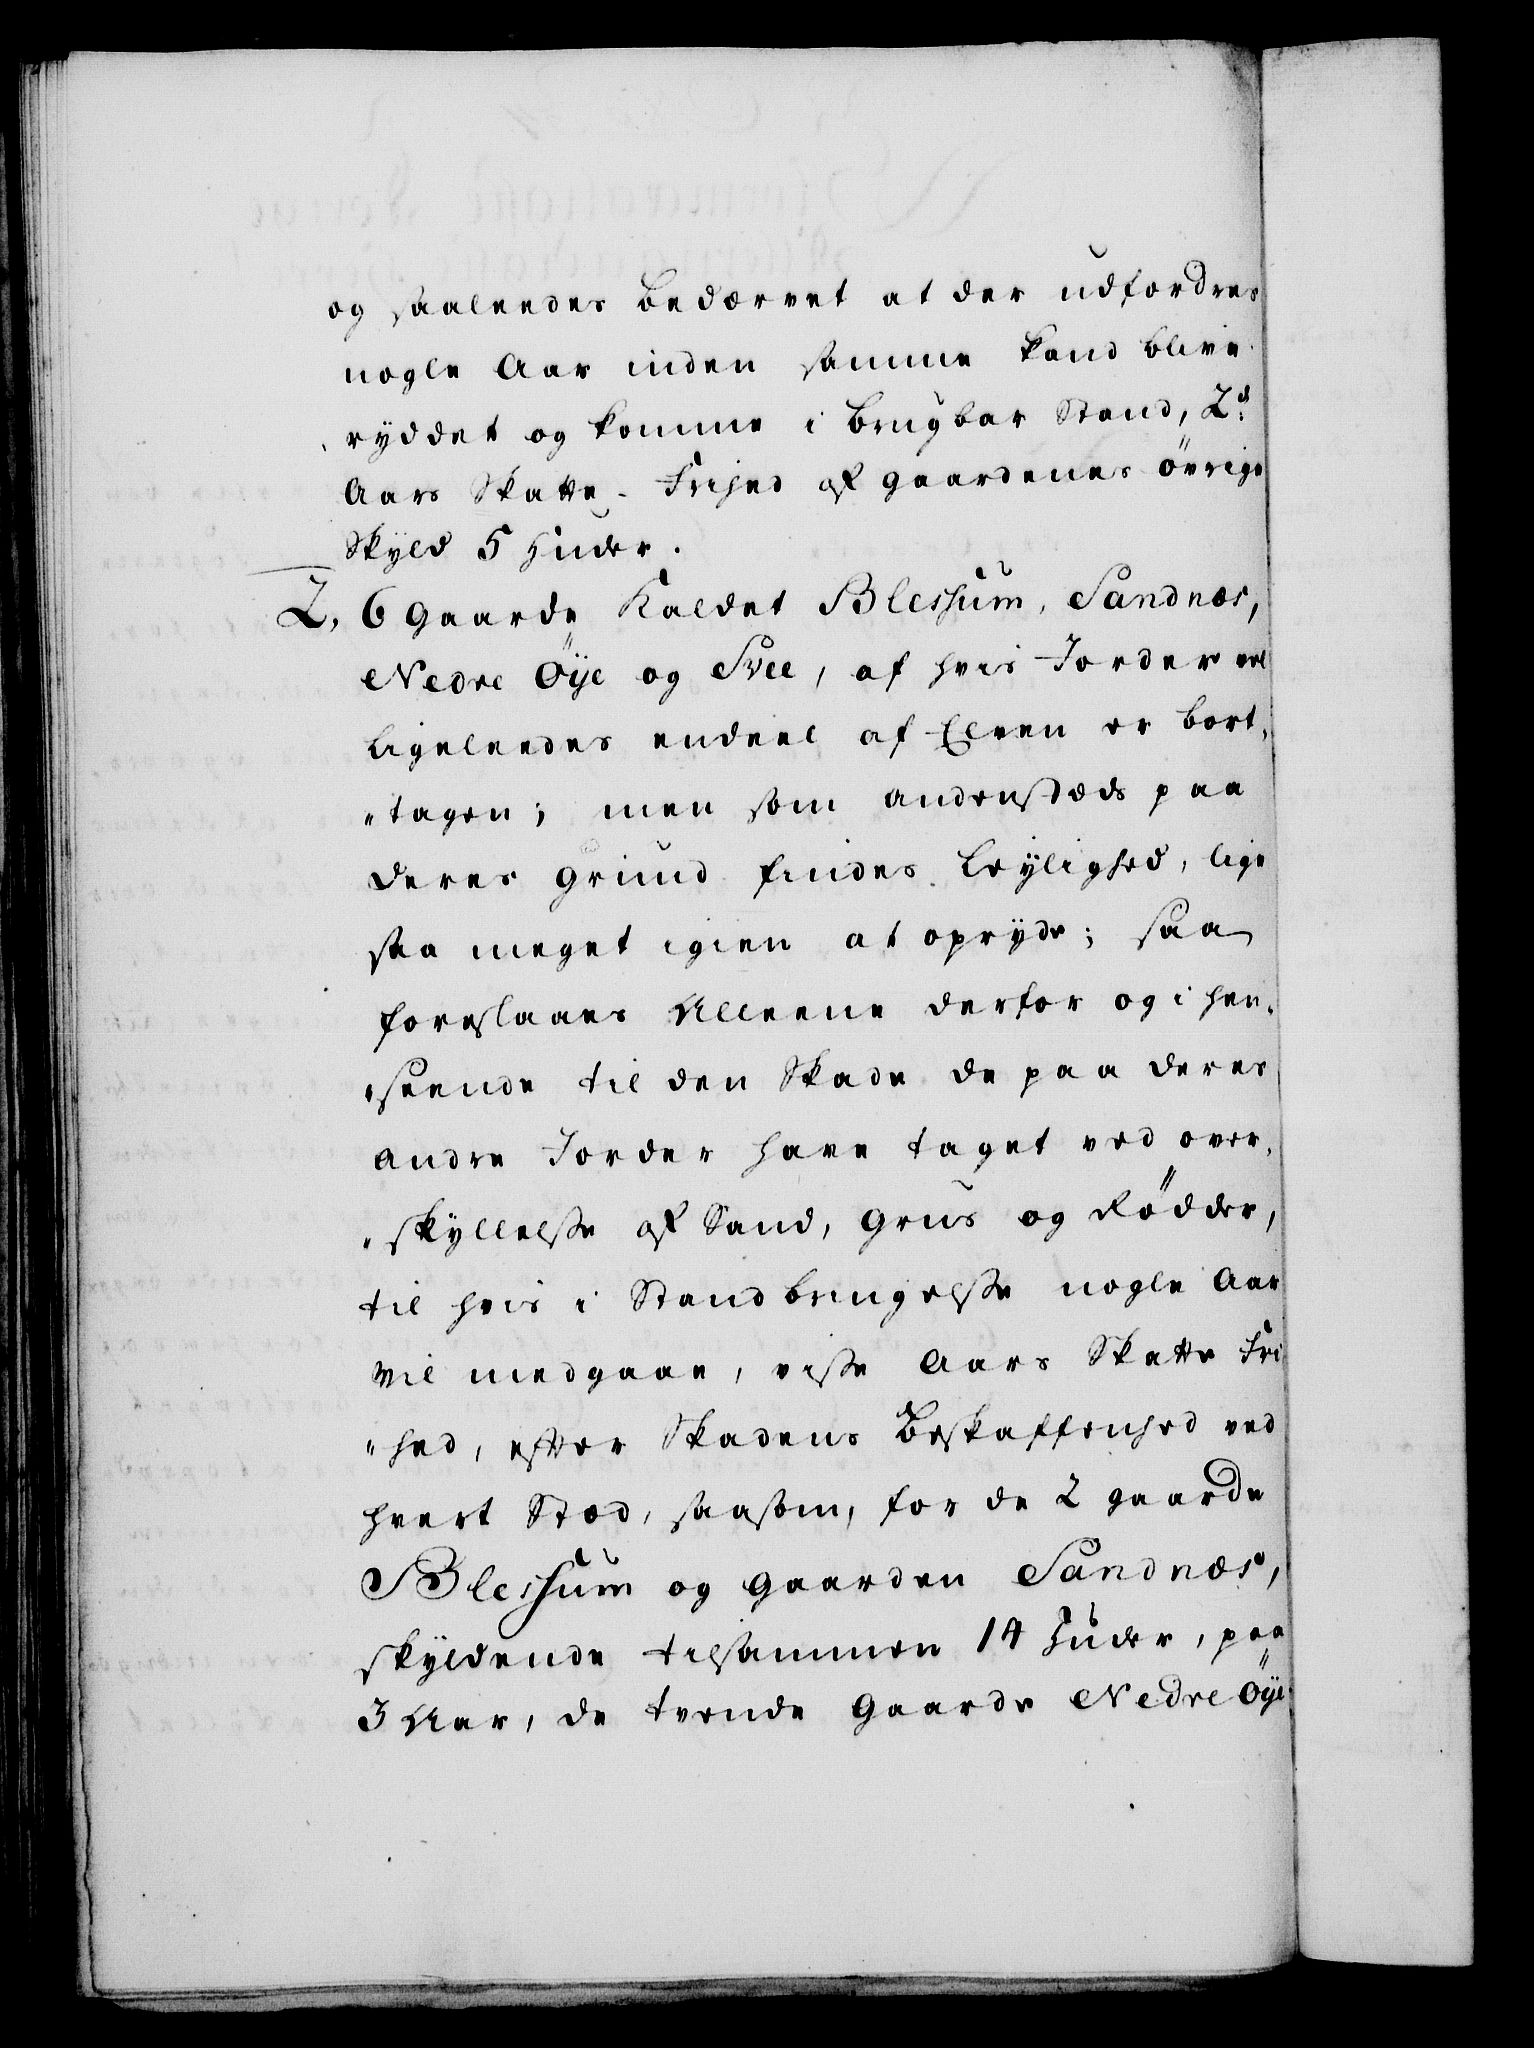 og saaleedes bedærvet at der udfordres
nogle Aar inden samme kand blive
ryddet og komme i brugbar Stand, 2de
Aars Skatte-Frihed af gaardenes övrige
Skyld 5 Huder.
2, 6 Gaarde Kaldet Blessum, Sandnæs,
Nedre Öÿe og Svee, af hvis Jorder vel
ligeleedes endeel af Elven er bort-
"tagen; men som andenstæds paa
deres Grund findes Leylighed, lige
saa meget igien at oprÿde; saa
foreslaaes Alleene derfor og i hen-
"seende til den Skade de paa deres
andre Jorder have taget ved over-
"skyllelsse af Sand, Grus og Rödder,
til hvis i Standbringelsse nogle Aar
vil medgaae, visse Aars Skatte Fri
"hed, efter Skadens Beskaffenhed ved
hvert Stæd, saasom, for de 2 gaarde
Blessum og Gaarden Sandnæs,
skyldende tilsammen 14 Huder, paa
3 Aar, de tvende Gaarde Nedre Öÿe